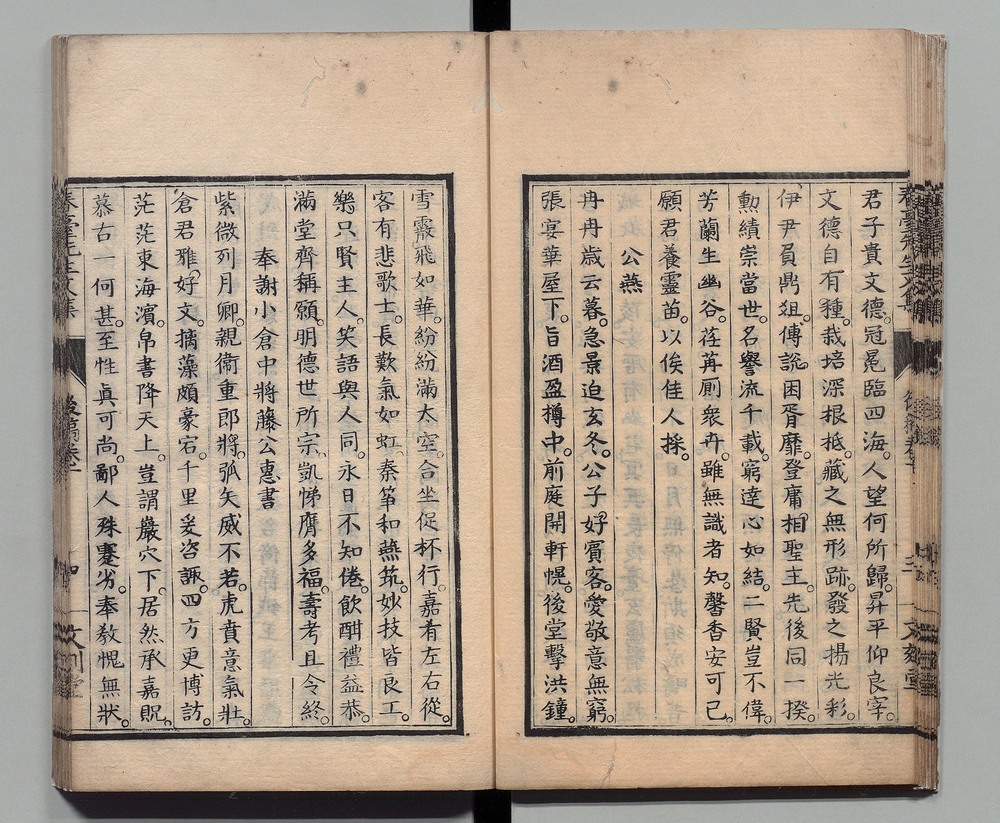 君子貴文德。冠冕臨四海。人望何所歸。昇平仰良宰。
文德自有種。栽培深根抵。藏之無形跡。發之揚光彩。
伊尹負鼎俎。傅說困胥靡。登庸相聖主。先後同一揆。
勲績崇當世。名譽流千載。窮達心如結。二賢豈不偉。
芳蘭生幽谷。荏苒厠衆卉。雖無識者知。馨香安可已。
願君養靈苗。以俟佳人採。
公燕
冉冉歲云暮。急景迫玄冬。公子好賓客。愛敬意無窮。
張宴華屋下。旨酒盈樽中。前庭開軒幌。後堂擊洪鐘。
雪霰飛如華。紛紛滿太空。合坐促杯行。嘉肴左右從。
客有悲歌士。長歎氣如虹。秦筝和燕筑。妙技皆良工。
樂只賢主人。笑語與人同。永日不知倦。飲酣禮益恭。
滿堂齊稱願。明德世所宗。凱悌膺多福。壽考且令終。
奉謝小倉中將藤公惠書
紫微列月卿。親衞重郎將。弧矢威不若。虎賁意氣壯。
倉君雅好文。摛藻頗豪宕。千里爰咨諏。四方更博訪。
茫茫東海濱。帛書降天上。豈謂巖穴下。居然承嘉貺。
慕古一何甚。至性眞可尚。鄙人殊蹇劣。奉教愧無狀。
春臺先生文集
後稿卷一